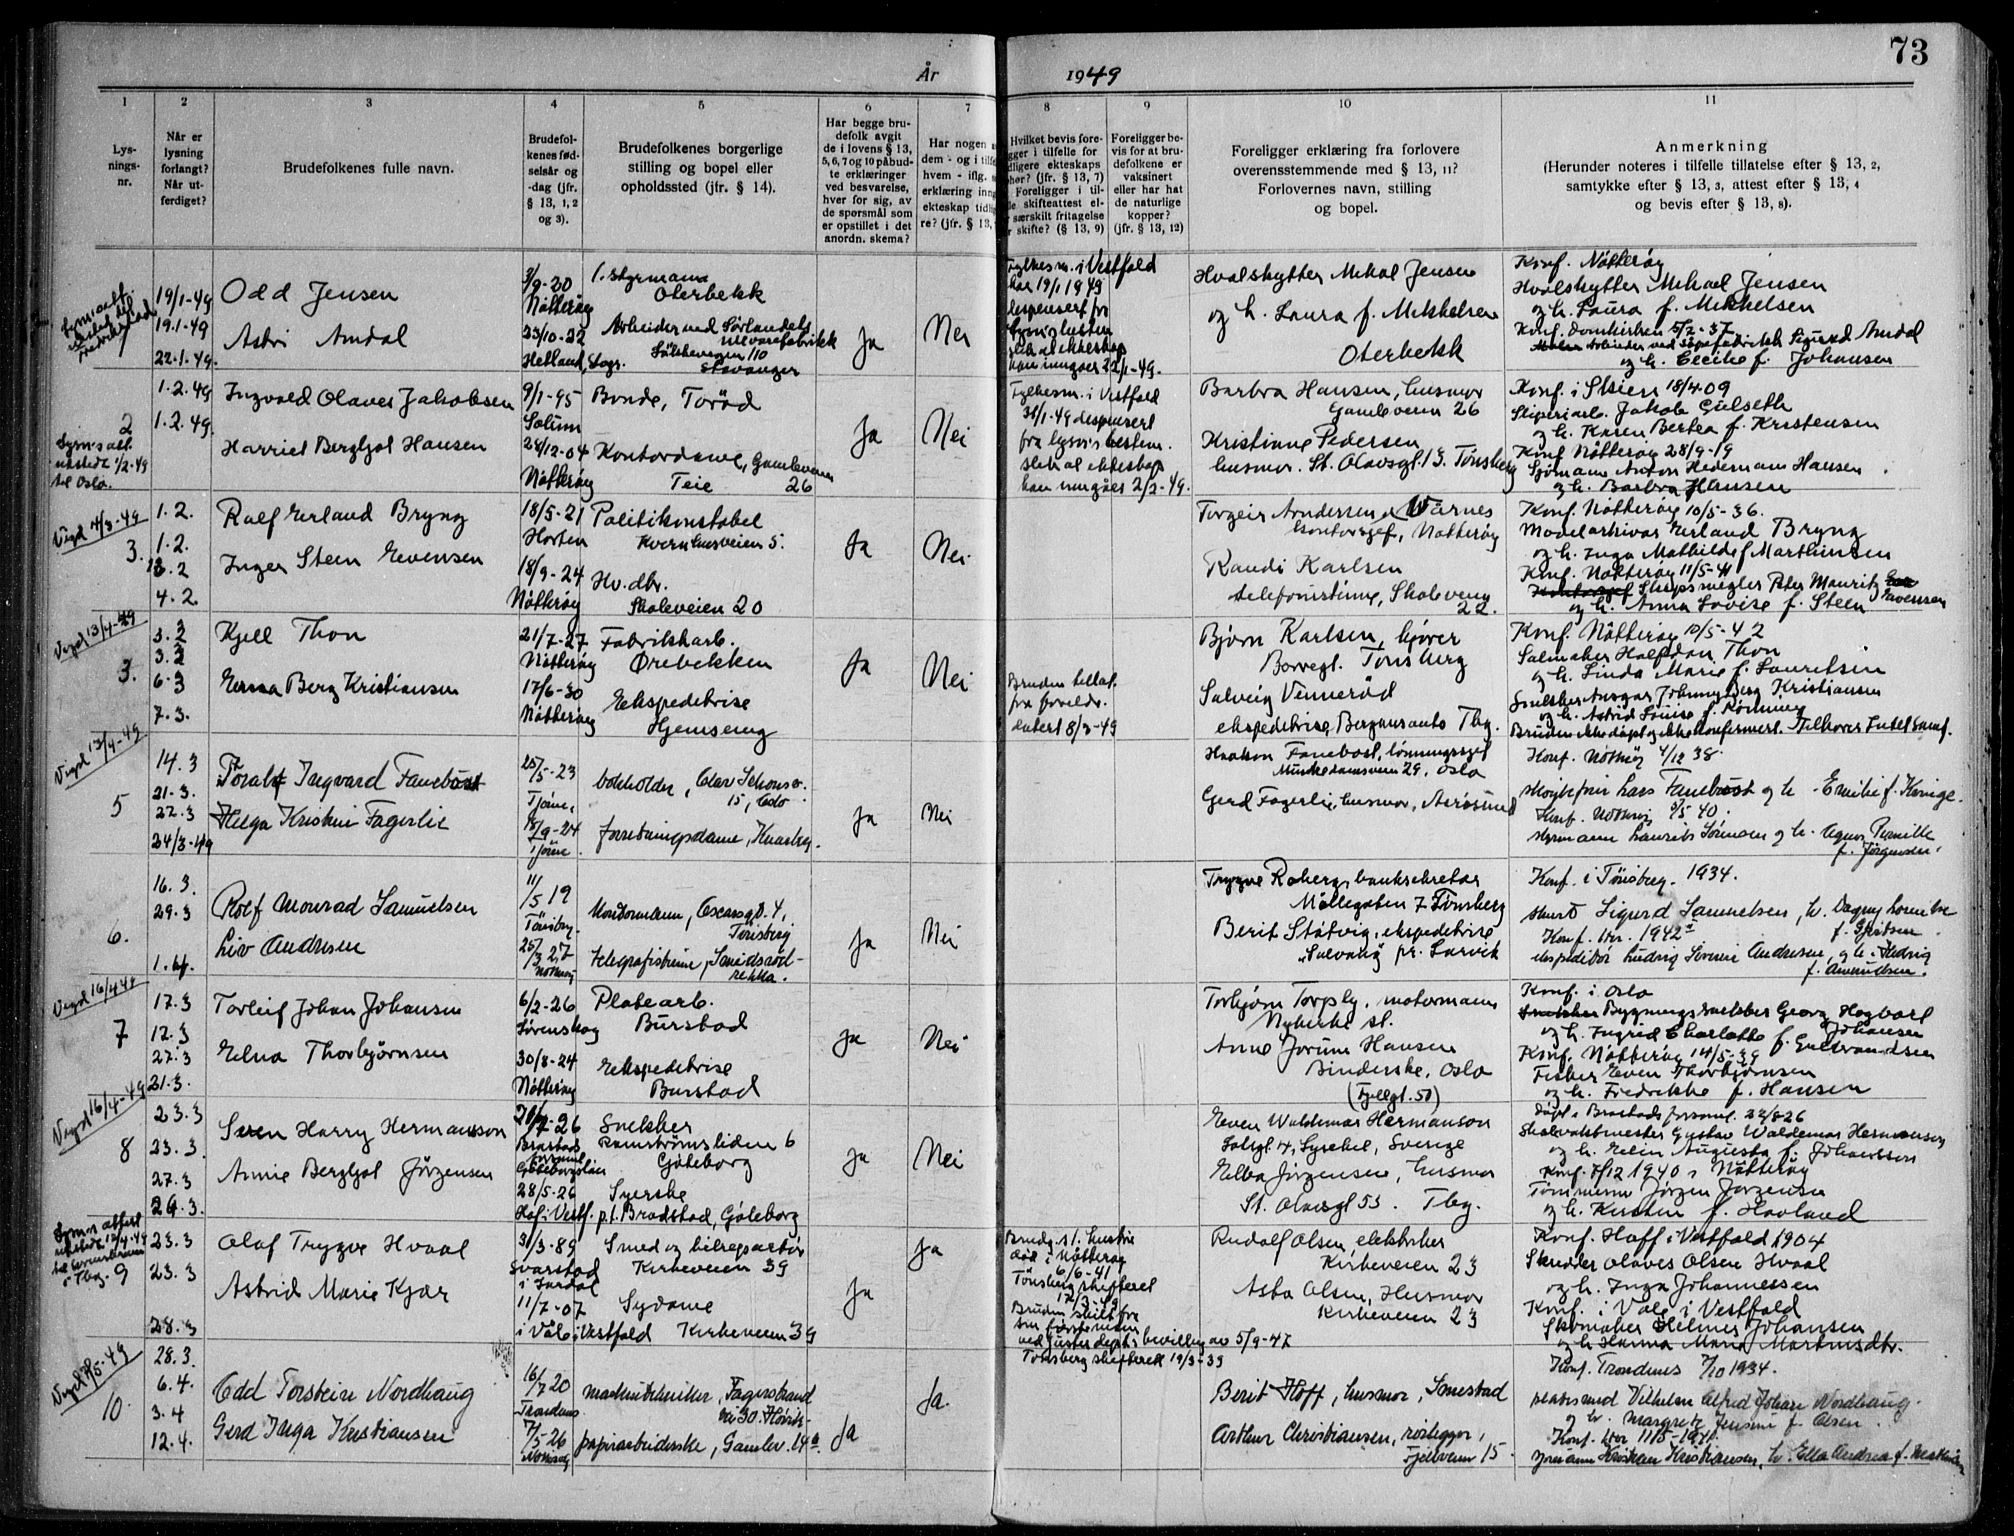 73
År 1949
1 2 3 4 5 6 7 8 9 10 11
Lys-
nings-
nr.
Når er
lysning
forlangt?
Når ut-
ferdiget?
Brudefolkenes fulle navn.
Brudefol-
kenes fød-
selsår og
-dag (jfr.
§ 13, 1, 2
og 3).
Brudefolkenes borgerlige
stilling og bopel eller
opholdssted (jfr. § 14).
Har begge bru-
defolk avgit
de i lovens § 13,
5, 6, 7 og 10 påbud-
te erklæringer
ved besvarelse,
hver for sig, av
de spørsmål som
er opstillet i det
anordn. skema?
Har nogen
dem - og i tilfe
hvem - iflg.
erklæring inng
ekteskap tidlig
re? (jfr. § 13,
Hvilket bevis fore-
gger i tilfelle for
dligere ekteskaps
phør? (jfr. § 13, 7)
Foreligger i til-
le skifteattest el-
særskilt fritagelse
r skifte? (§ 13, 9)
Foreligger be-
vis for at bru-
defolkene er
vaksinert
eller har hat
de naturlige
kopper?
(jfr. § 13, 12)
Foreligger erklæring fra forlovere
overensstemmende med § 13, 11?
Forlovernes navn, stilling
og bopel.
Anmerkning
(Herunder noteres i tilfelle tillatelse efter § 13, 2,
samtykke efter § 13, 3, attest efter § 13, 4
og bevis efter § 13, 8).
1
19/1-49
19.1-49
22-1-49.
Odd Jensen
Astri Amdal
3/9-20
Nøtterøy
23/10-22
Helland, Sogn.
1. styrmann
Oterbekk
Arbeider ved Sørlandets
Stavanger
Ja
Nei
Fylkesm. i Vestfold
har 19/1 1949
dispensert fra
slik at ekteskap
kan inngåes 22/1-49.
Hvalskytter Mikal Jensen
og h. Laura f. Mikkelsen
Oterbekk
Konf. Nøtterøy
Hvalskytter Mikael Jensen
og h. Laura f. Mikkelsen
Konf. Domkirken 5/2-37
Arbeider ved Sigurd Amdal
og h. Cecilie f. Johansen
2
Lysn.s att.
utstedt 1/2-49
til Oslo.
1.2.49
1.2.49.
Ingvald Olaves Jakobsen
Harriet Bergljot Hansen
9/1-95
Solum
24/12-04
Nøtterøy
Bonde, Torød
Kontordame, Gamleveien
Teie 26
Ja
Nei
Fylkesm. i Vestfold
31/1-49 dispensert
fra lysn.s bestem.
slik at ekteskap
kan inngåes 2/2-49.
Barbra Hansen, husmor
Gamleveien 26
Kristiane Pedersen
husmor. St. Olavsgt. 13. Tønsberg
Konf. i Skien 18/4 09
Jakob Gulseth
og h. Karen Bertea f. Kristensen
Konf Nøtterøy 28/9-19
Sjømann Anton Hedemann Hansen
og h. Barbra Hansen
Vigd 4/3-49
3.
1.2.
1.2.
4.2.
Ralf Erland Bryng
Inger Steen Evensen
18/5-21
Horten
18/9-24
Nøtterøy
Politikonstabel
Kvernhusveien 5.
Hv. dtr.
Skoleveien 20
Ja
Nei
Torgeir Andersen Wårnes
kontorsjef, Nøtterøy
Randi Karlsen
telefonistinne, Skoleveien
22.
Konf. Nøtterøy 10/5-36.
Modelarkivar Erland Bryng
og h. Inga Mathilde f Marthinsen
Konf. Nøtterøy 11/5-41
Skipsmegler Peter Mauritz Evensen
og h. Anna Lovise f. Steen
Vigd 13/4-49
3.
3.2
3.2
6.3
7.3.
Kjell Thon
Erna Berg Kristiansen
21/7-27
Nøtterøy
17/6-30
Nøtterøy
Fabrikkarb.
Ørebekken
Ekspeditrise
Hjemseng
Ja
Nei
Bruden tillat.
fra foreldr.
datert 8/3-49
Bjørn Karlsen, kjører
Borregt. Tønsberg
Solveig Vennerød
ekspeditrise, Bergans auto Tbg.
Konf. Nøtterøy 10/5-42
Salmaker Halfdan Thon
og h. Linda Marie f. Lauritsen
Snekker Ansgar Johnny Berg Kristiansen
og h. Astrid Louise f. Rønning
Bruden ikke døpt og ikke konfirmert.
Vigd 13/4-49
5
14.3
21.3.
22.3
24/3-49
Toralf Ingvard Fanebust
Helga Kristine Fagerlie
25/5-23
Tjøme,
18/9-24
Tjøme.
bokholder, Olav
15, Oslo
forretningsdame,
Ja
Nei
Haakon Fanebust, lønningssjef
Munkedamsveien 29, Oslo
Gerd Fagerlie, husmor, Årøsund
Konf. Nøtterøy 4/12 38.
Lars Fanebust og h. Emilie f. Konige.
Konf. Nøtterøy 5/5 40.
styrmann Lauritz Sørensen og h. Agnes Pernille
f. Jørgensen.
6.
16.3.
29.3
1.4.
Rolf Monrad Samuelsen
Liv Andresen
11/5 19
Tønsberg.
25/3 27
Nøtterøy
Kontormann, Oscarsgt. 4,
Tønsberg
telegrafistinne, Smidsrød-
rekka.
Ja
Nei
Trygve Roberg, banksekretær
Møllegaten 7 Tønsberg
Berit Støtvig, ekspeditrise
"Solvang" pr. Larvik
Konf. i Tønsberg. 1934.
Sigurd Samuelsen, h. Dagny Lorentze
f. Gjertsen.
Konf. 1942
ekspeditør Ludvig Severin Andresen, og h. Hedvig
f. Amundsen.
Vigd 16/4 49
7
17.3
12.3
27.3
21.3.
Torleif Johan Johansen
Elna Thorbjørnsen
6/2-26
Lørenskog
30/8-24
Nøtterøy
Platearb.
Burstad
Ekspeditrise
Burstad
Ja
Nei
Torbjørn Torpsly, motormann
Nykirke st.
Anne Jorunn Hansen
Binderske, Oslo
(Fjellgt. 50)
Konf. i Oslo
Bygningssnekker Georg Hagbart
Johansen
og h. Ingrid Charlotte f. Gulbrandsen
Konf. Nøtterøy 14/5-39
Fisker Even Thorbjørnsen
og h. Fredrikke f. Hansen
Vigd 16/4-49
8
23.3
23.3.
27.3
24.3.
Sven Harry Hermansson
Annie Bergljot Jørgensen
Brastad
28/5-26
Hof i Vestf.
Snekker
Ramströmsliden 6
Göteborg
Syerske
p.t. Bradstad, Göteborg
Ja
Nei
Even Waldemar Hermanson
Lysekil, Sverige
Elba Jørgensen, husmor
St. Olavsgt 53. Tbg.
Døpt i Brastads forsaml. 22/8 26
Gustav Waldemar Hermanson
og h. Elin Augusta f. Johansson
Konf. 8/12 1940 i Nøtterøy
Tømmerm Jørgen Jørgensen
og h. Kirstine f. Havland
Lysn.s attest
utstedt 12/4-49
i Tbg.
9
23.3
23.3
28.3
Olaf Trygve Hvaal
Astrid Marie Kjær
31/3-89
Svarstad
i Lardal
11/7-07
i Våle i Vestfold
Smed og bilreparatør
Kirkeveien 39
Sydame
Kirkeveien 39
Ja
Ja
Brudg.s 1. hustru
død i Nøtterøy
6/6-41
Tønsberg skifterett
Bruden skilt fra
sin første mann
ved Justisdept.s bevilling av 5/9-47
Tønsberg skifterett 19/3-39
Rudolf Olsen, elektriker
Kirkeveien 23
Asta Olsen, Husmor
Kirkeveien 23
Konf. Hoff i Vestfold 1904
Skredder Olaves Olsen Hvaal
og h. Inga Johannessen
Konf. i Våle i Vestfold
Skomaker Helmer Johansen
og h. Hanna Maria Martinsdtr.
10.
28.3.
6.4.
3.4
12.4.
Odd Torstein Nordhaug
Gerd Inga Kristiansen
16/7 20
Trondenes
7/5-26
Nøtterøy
maskintekniker, Fagerstrand
vei 30. Høvik.
papirarbeiderske, Gamlev. 14a
Ja
Ja.
Berit Hoff, husmor, Smestad
Arthur Christiansen, rørlegger,
Fjellveien 15.
Konf. Trondenes 7/10 1934.
Vilhelm Alfred Johan Nordhaug.
og h. Margrete Jensine f. Olsen.
Konf. 11/5-1941
Kristian Kristiansen, h. Ella Andrea f. Mathisen